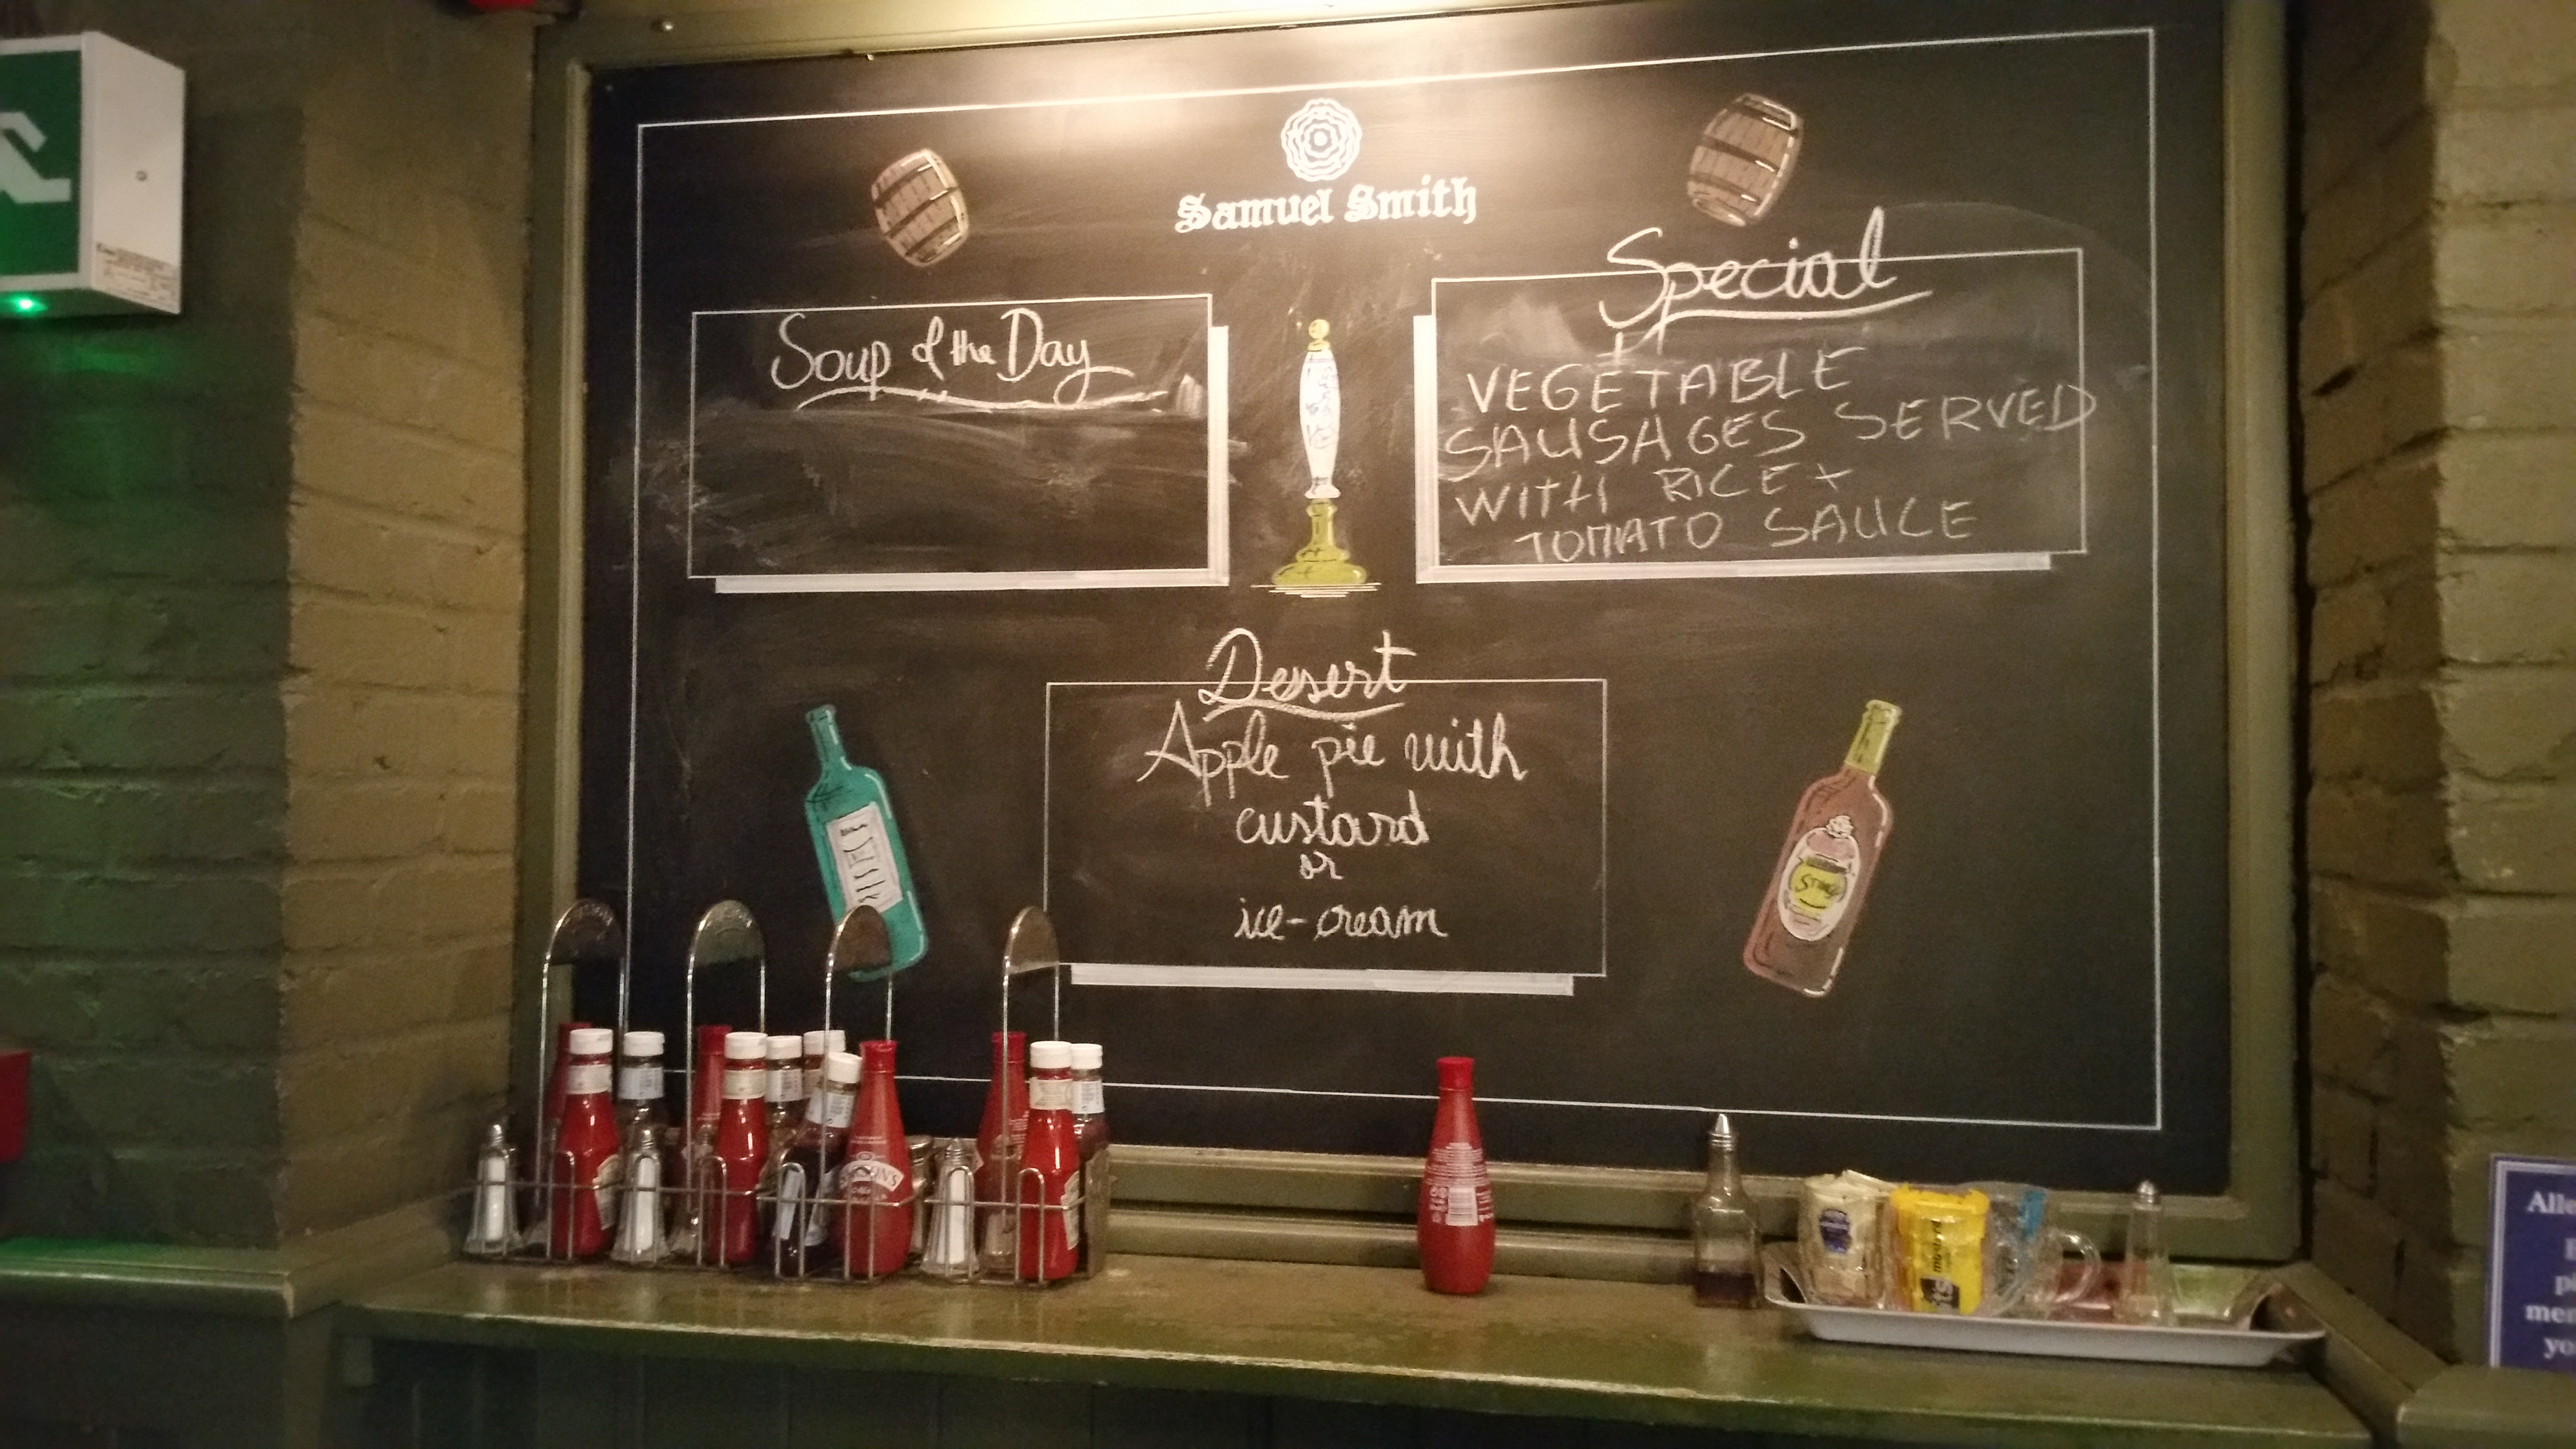 Samuel Smith
Soup of the Day
Special
VEGETABLE
SAUSAGES SERVED
WITH RICE +
TOMATO SAUCE
Dessert
Apple pie with
custard
or
ice-cream